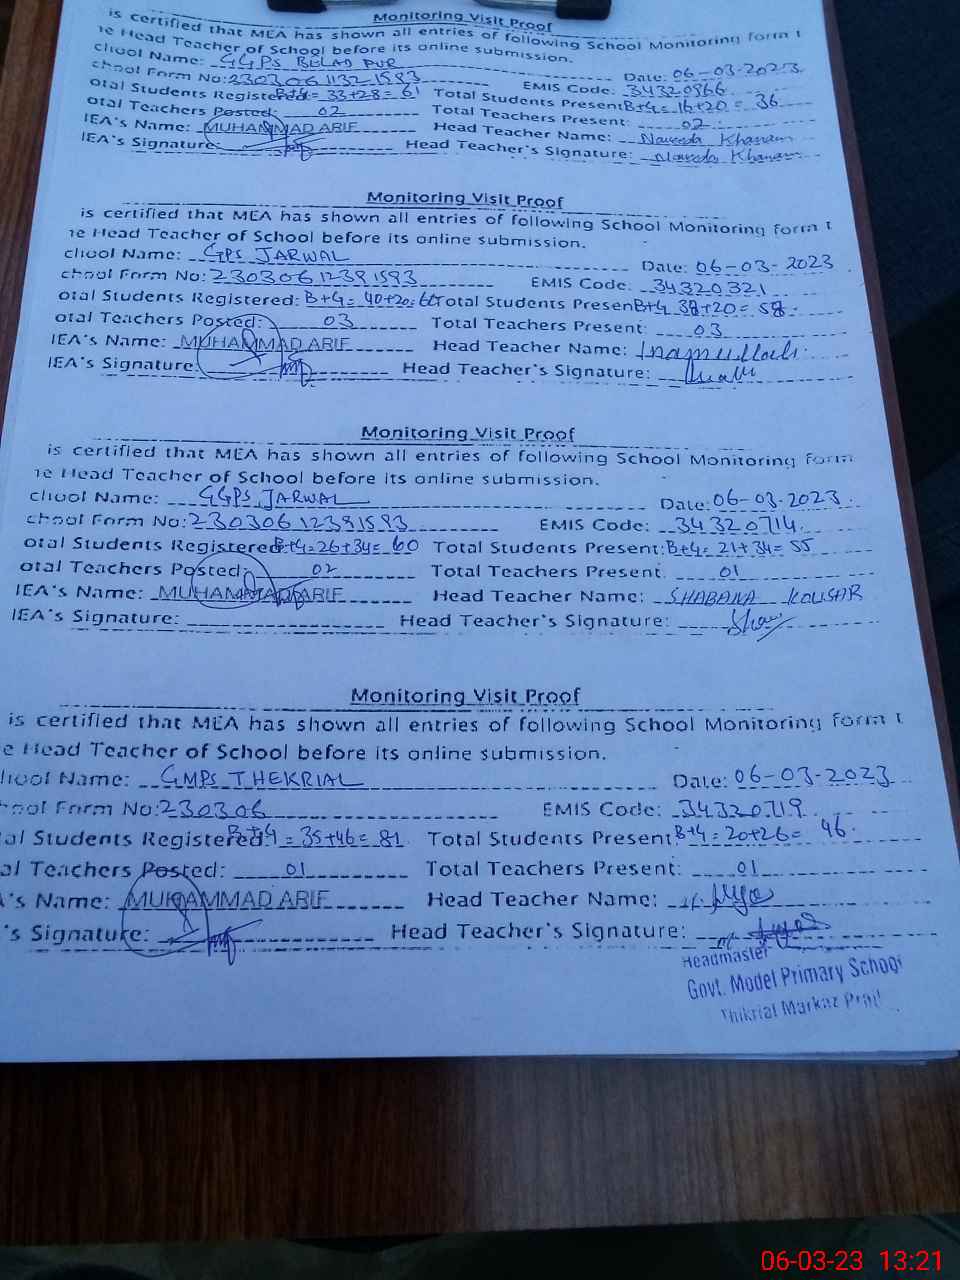 Monitoring Visit Proof
is certified that MEA has shown all entries of following School Monitoring form t
ne Head Teacher of School before its online submission.
chool Name: GGPS BELAD PUR Date: 06-03-2023
chool Form No: 23030611321583 EMIS Code: 34320966
otal Students Registered: B+G = 33+28 = 61 Total Students Present B+G = 16+20 = 36
otal Teachers Posted: 02 Total Teachers Present: 02
IEA's Name: MUHAMMAD ARIF Head Teacher Name: Naveeda Khanam
IEA's Signature: Head Teacher's Signature: Naveeda Khanam
Monitoring Visit Proof
is certified that MEA has shown all entries of following School Monitoring form t
ne Head Teacher of School before its online submission.
chool Name: GPS JARWAL Date: 06-03-2023
chool Form No: 23030612391593 EMIS Code: 34320321
otal Students Registered: B+G = 40+20=60 Total Students Presen B+G 38+20 = 58
otal Teachers Posted: 03 Total Teachers Present: 03
IEA's Name: MUHAMMAD ARIF Head Teacher Name: Inamullah
IEA's Signature: Head Teacher's Signature:
Monitoring Visit Proof
is certified that MEA has shown all entries of following School Monitoring form
ne Head Teacher of School before its online submission.
chool Name: GGPS JARWAL Date: 06-03-2023
chool Form No: 23030612391593 EMIS Code: 34320714
otal Students Registered B+G = 26+34 = 60 Total Students Present: B+G = 21+34 = 55
otal Teachers Posted: 02 Total Teachers Present 01
IEA's Name: MUHAMMAD ARIF Head Teacher Name: SHABANA KOUSAR
IEA's Signature: Head Teacher's Signature:
Monitoring Visit Proof
is certified that MEA has shown all entries of following School Monitoring form t
e Head Teacher of School before its online submission.
hool Name: GMPS THEKRIAL Date: 06-03-2023
hool Form No: 230306 EMIS Code: 34320719
al Students Registered: B+G = 35+46 = 81 Total Students Present B+G = 20+26 = 46
al Teachers Posted: 01 Total Teachers Present: 01
A's Name: MUHAMMAD ARIF Head Teacher Name:
's Signature: Head Teacher's Signature:
Headmaster
Govt. Model Primary School
Thikrial Markaz
06-03-23 13:21